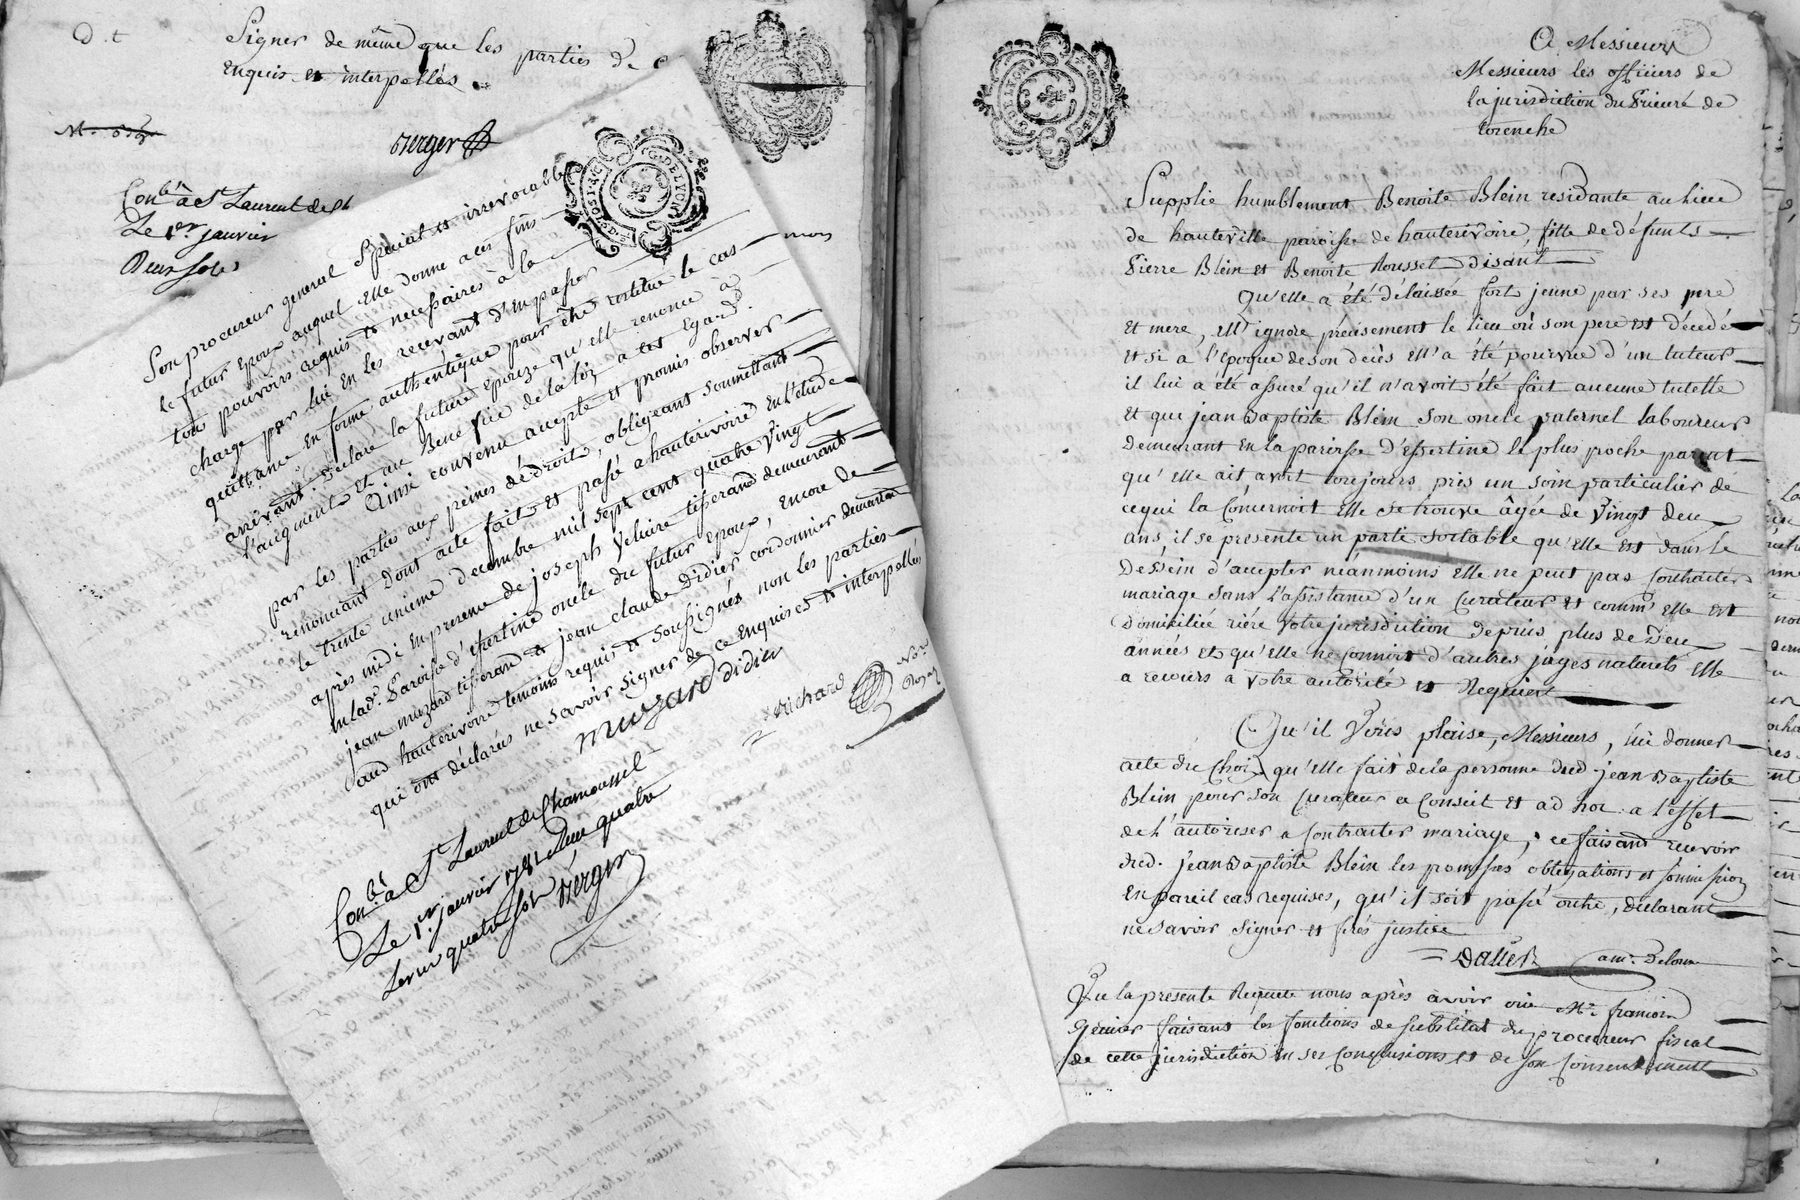 Signer de même que les parties de
Enquis et interpellés
verger
Con.lé à St Laurent de
Le 1er janvier
Deux sols
G. DE LYON
Son procureur general Special et irrevocable
le futur Epoux auquel Elle donne a ces fins
tous pouvoirs requis et necessaires à la
charge par lui En les recevant d'En passer
quittance En forme authentique pour être restitué le cas
arrivant déclare la future Epouze qu'elle renonce à
l'augment et au Benefice de la loy a cet Egard
Ainsi convenu accepté et promis observer
par les parties aux peines de droit, obligeant soumettant
renonceant Dont acte fait et passé a hauterivoire En l'etude
le trente unieme Decembre mil sept cent quatre vingt
après midi En presence de joseph Veluire tisserand demeurant
En lad. Paroisse d'Essertine oncle du futur epoux, Encore de
jean muzard tisserand et jean claude Didier cordonnier demeurant
aud hauterivoire temoins requis et soussignés non les parties
qui ont déclarées ne Savoir signer de ce Enquises et interpellées
muzard didier
Richard Nore Royal
Con.lé à St Laurent de Chamousset
Le 1er janvier 1781
quatre sols verger
G. DE LYON
A Messieurs
Messieurs les officiers de
la jurisdiction du Prieuré de
Supplie humblement Benoite Blein residante au lieu
de hauteville paroisse de hauterivoire, fille de défunts
Pierre Blein et Benoite Rousset disant
Qu'elle a été délaissée fort jeune par ses pere
et mere, Ell' ignore précisement le lieu où son pere est décedé
et si à l'époque de son décès Ell'a été pourvue d'un tuteur
il lui a été assuré qu'il n'avoit été fait aucune tutelle
et que jean Baptiste Blein son oncle paternel laboureur
Demeurant En la paroisse D'Essertine le plus proche parent
qu'elle ait avoit toujours pris un soin particulier de
ce qui la Concernoit Elle se trouve âgée de Vingt deux
ans, il se presente un parti sortable qu'elle Est dans le
Dessein d'accepter néanmoins Elle ne peut pas Contracter
mariage Sans l'assistance d'un Curateur et comm' elle est
Domiciliée rière Votre jurisdiction Depuis plus de Deux
années et qu'elle ne Connoit d'autres juges naturels Elle
a recours à Votre autorité et Requiert
Qu'il Vous plaise, Messieurs, lui donner
acte du Choix qu'elle fait de la personne dud. jean Baptiste
Blein pour son Curateur a Conseil et ad hoc a l'effet
de l'autoriser a Contracter mariage, ce faisant recevoir
dud. jean Baptiste Blein les promesses obligations et soumission
En pareil cas requises, qu'il soit passé outre, déclarant
ne savoir signer et ferés justice
Vu la presente Requete nous après avoir oui Mr. françois
faisant les fonctions de substitut du procureur fiscal
de cette jurisdiction En ses Conclusions et de son Consentement